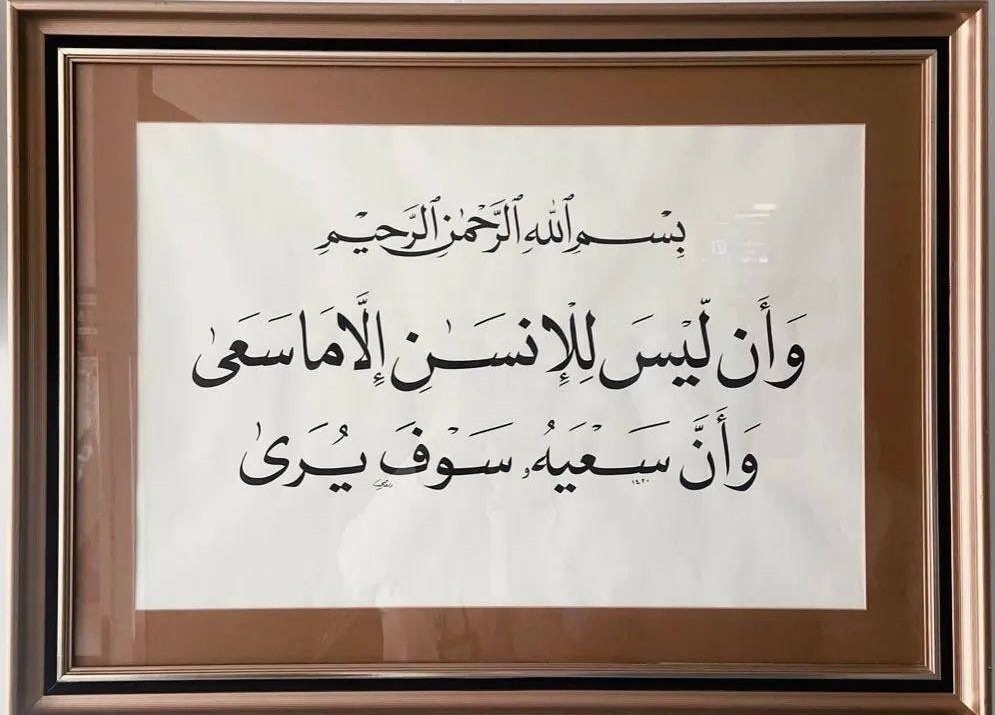 بِسْمِ ٱللَّهِ ٱلرَّحْمَٰنِ ٱلرَّحِيمِ
وَأَن لَّيْسَ لِلْإِنسَٰنِ إِلَّا مَا سَعَىٰ
وَأَنَّ سَعْيَهُۥ سَوْفَ يُرَىٰ
١٤٢٠